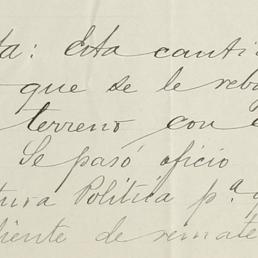 ta: Esta canti
que se le reba
terreno con e
Se pasó oficio
tura Política p.a q
diente de remate